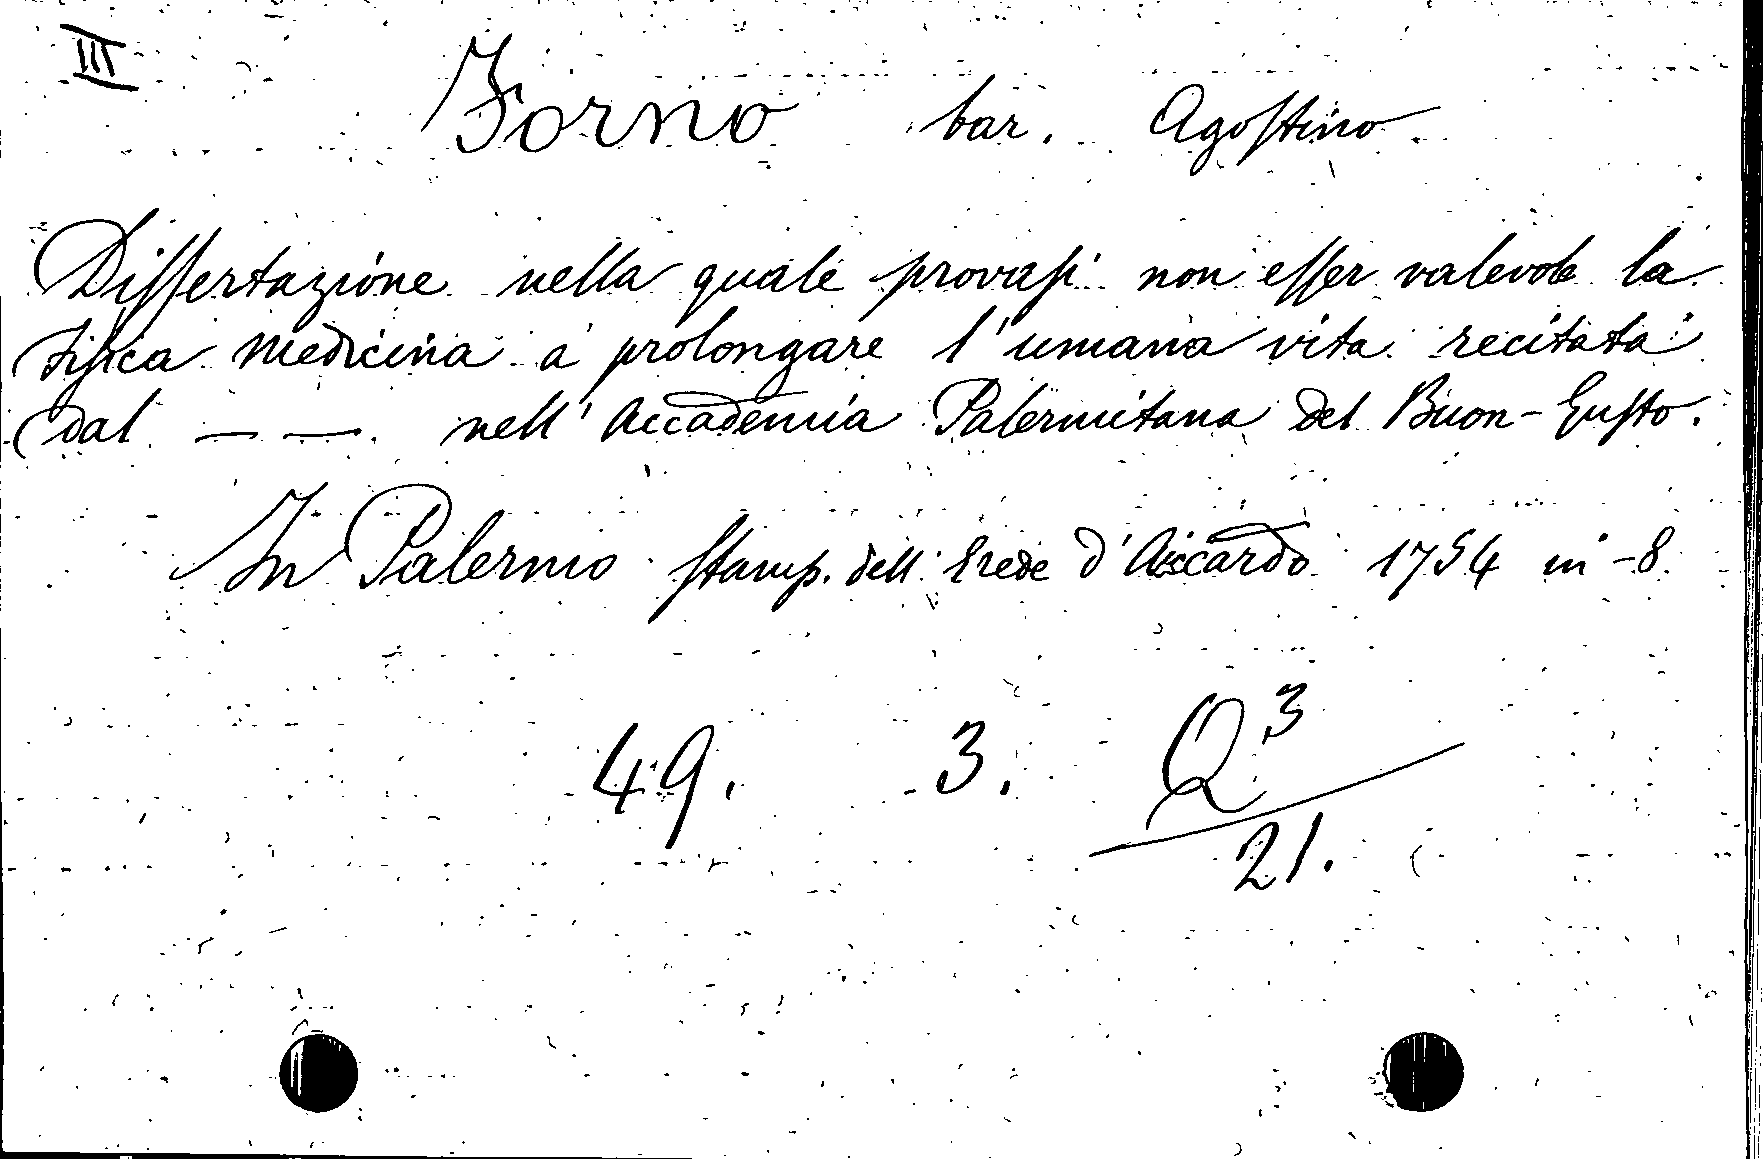 III
Forno bar. Agostino
Dissertazione nella quale provasi non esser valevole la
fisica medicina a prolongare l'umana vita recitata
dal — —. nell' Accademia Palermitana del Buon-Gusto.
In Palermo stamp. dell' Erede d'Aiccardo 1754 in -8
49. 3. Q3
21.